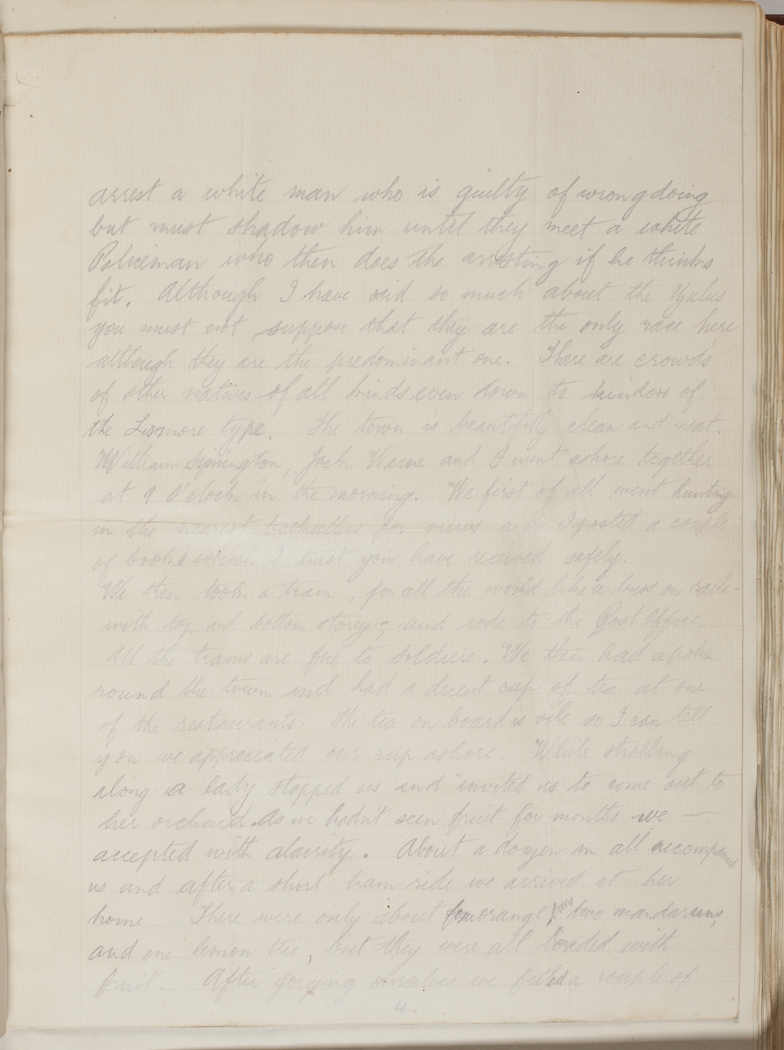 arrest a white man who is guilty of wrongdoing
but must shadow him until they meet a white
Policeman who then does the arresting if he thinks
fit. Although I have said so much about the Zulus
you must not suppose that they are the only race here
although they are the predominant one. There are crowds
of other natives of all kinds even down to hindoos of
the Lismore type. The town is beautifully clean and neat.
William Symington, Jack Warne and I went ashore together
at 9 O'clock in the morning. We first of all went hunting
in the nearest booksellers for views and I posted a couple
of books which I trust you have received safely.
We then took a tram, for all the world like a bus on rails
with top and bottom storeys, and rode to the Post Office.
All the trams are free to soldiers. We then had a poke
round the town and had a decent cup of tea at one
of the restaurants. The tea on board is vile so I can tell
you we appreciated our cup ashore. While strolling
along a lady stopped us and invited us to come out to
her orchard. As we hadn't seen fruit for months we —
accepted with alacrity. About a dozen in all accompanied
us and after a short tram ride we arrived at her
home. There were only about four orange, two mandarins,
and one lemon tree, but they were all loaded with
fruit. After gorging ourselves we filled a couple of
4.